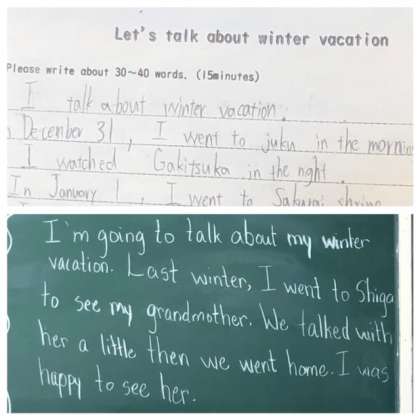 Let's talk about winter vacation
Please write about 30~40 words. (15minutes)
I talk about winter vacation.
December 31, I went to juku in the mornin
I watched Gakitsuka in the night.
In January 1, I went to Sakurai shrine
I'm going to talk about my winter
vacation. Last winter, I went to Shiga
to see my grandmother. We talked with
her a little then we went home. I was
happy to see her.